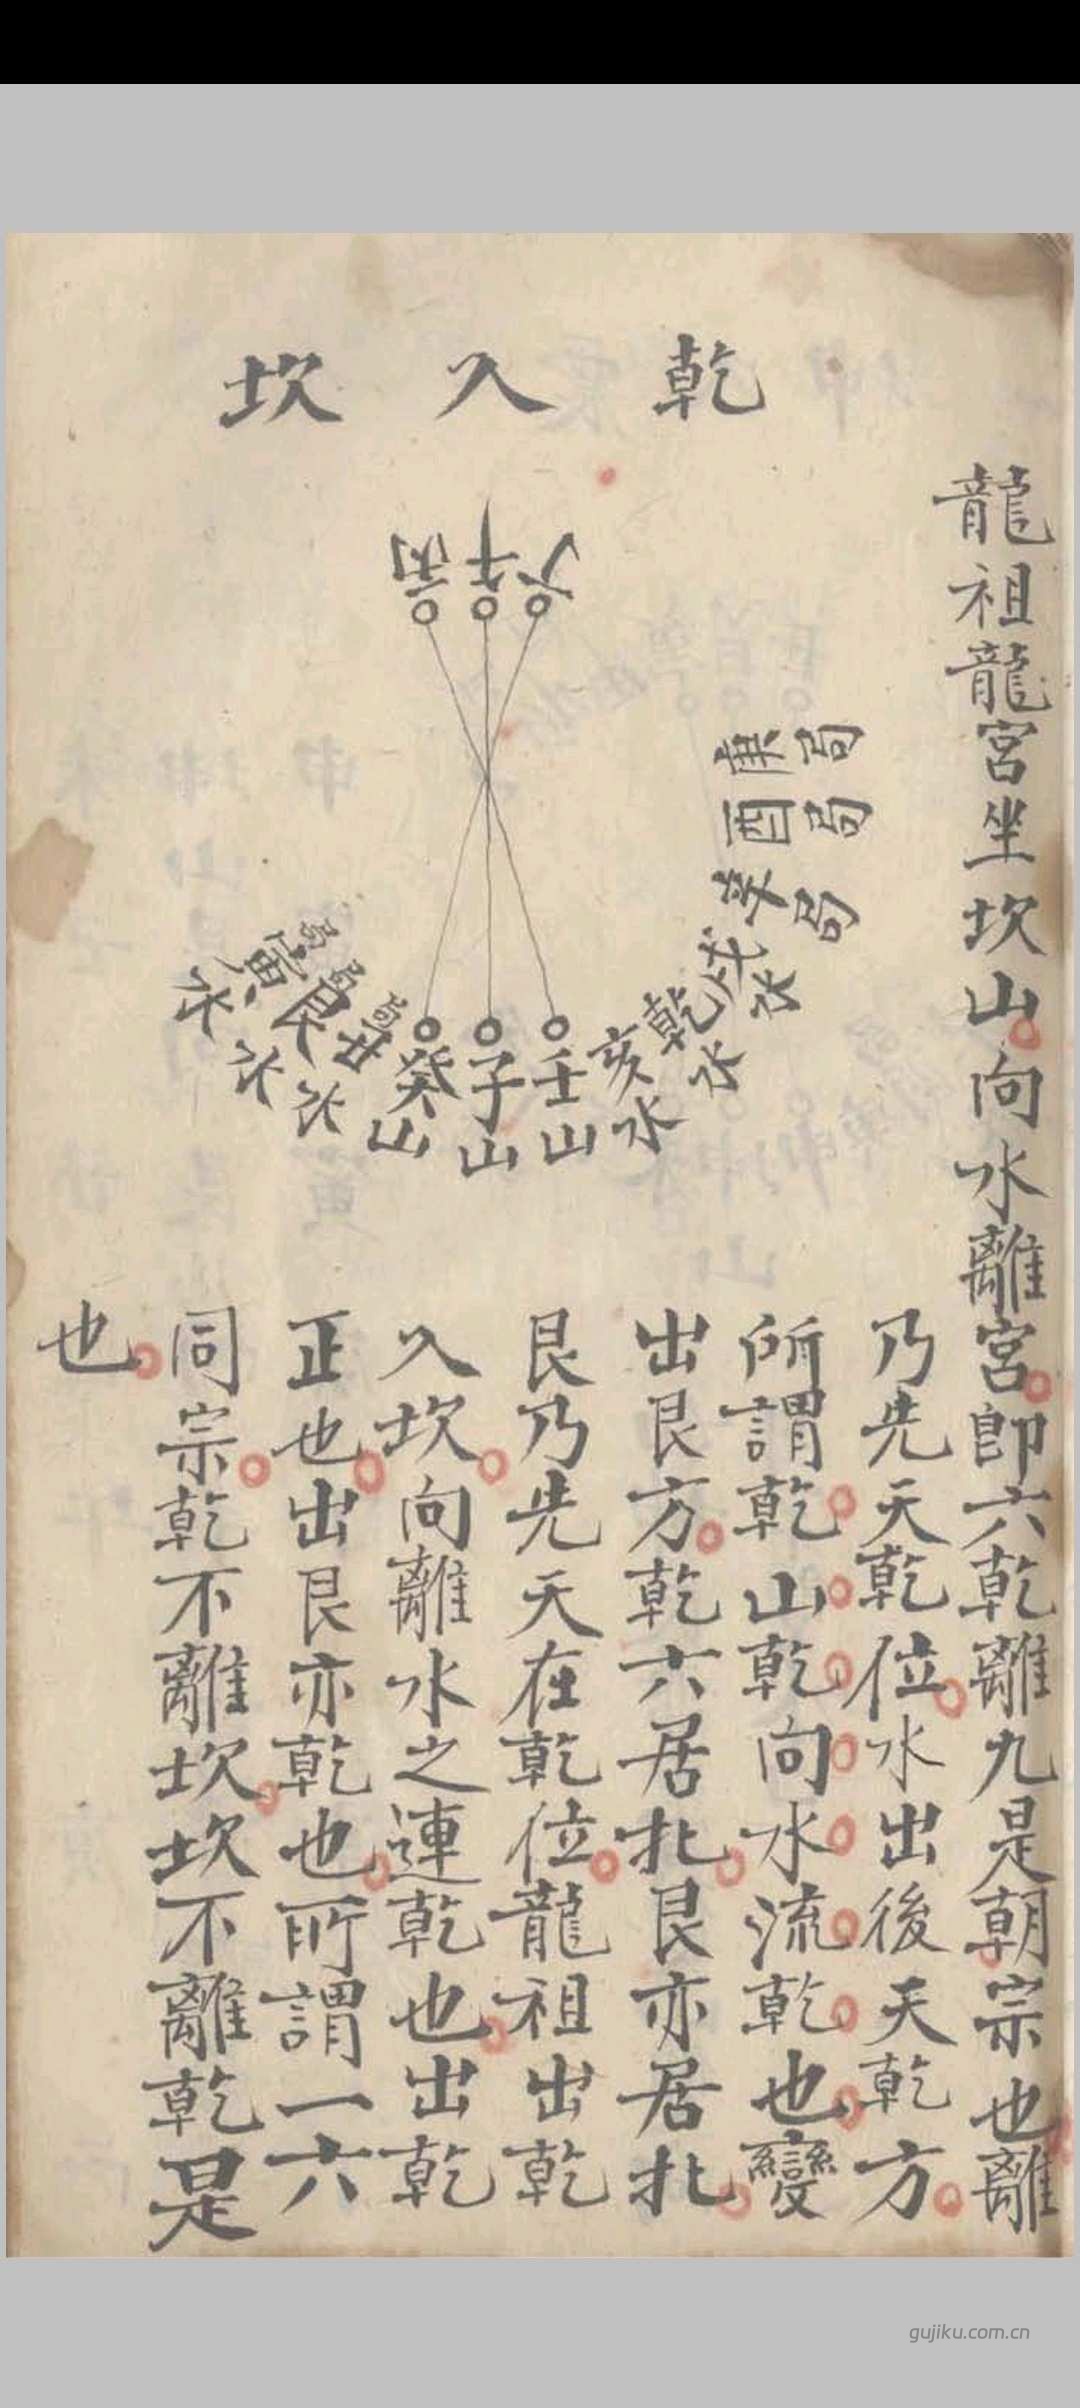 乾入坎
丙午丁
庚局
酉局
辛局
戌水
乾水
亥水
壬山
子山
癸山
丑局水
艮局水
寅局水
龍祖龍宮坐坎山向水離宮卽六乾離九是朝宗也離
乃先天乾位水出後天乾方
所謂乾山乾向水流乾也變
出艮方乾六居北艮亦居北
艮乃先天在乾位龍祖出乾
入坎向離水之連乾也出乾
正也出艮亦乾也所謂一六
同宗乾不離坎坎不離乾是
也
gujiku.com.cn